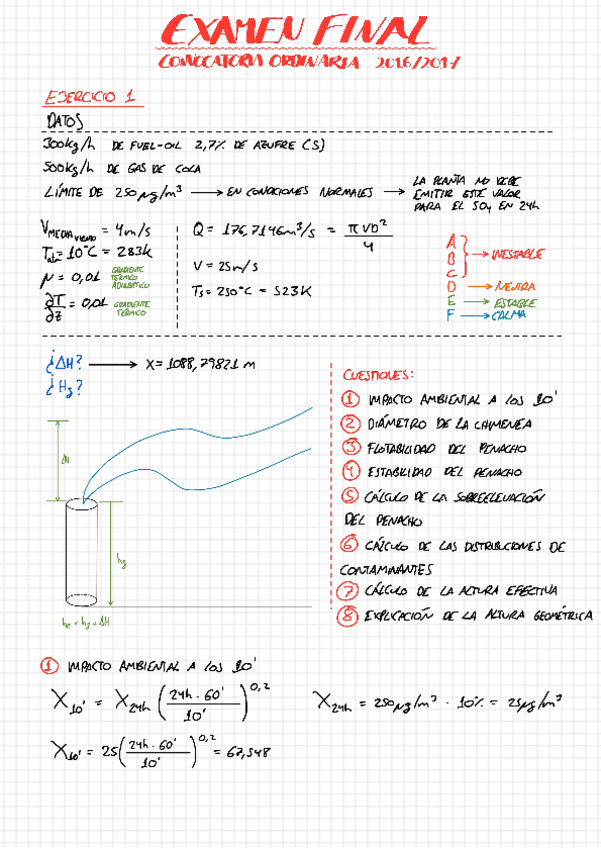 EXAMEN FINAL
CONVOCATORIA ORDINARIA 2016/2017
EJERCICIO 1
DATOS
300kg/h DE FUEL-OIL 2,7% DE AZUFRE (S)
500kg/h DE GAS DE COLA
LÍMITE DE 250 μg/m³ → EN CONDICIONES NORMALES → LA PLANTA NO DEBE
EMITIR ESTE VALOR
PARA EL SO₄ EN 24h
V MEDIA VIENTO = 4m/s
= 10°C = 283K
μ = 0,01 GRADIENTE TÉRMICO ADIABÁTICO
∂T/∂z = 0,01 GRADIENTE TÉRMICO
Q = 176,7146m³/s = πVD²/4
V = 25m/s
Ts = 250°C = 523K
A
B → INESTABLE
C
D → NEUTRA
E → ESTABLE
F → CALMA
¿ΔH? → X = 1088,79821 m
¿Hg?
ΔH
hg
he = hg + ΔH
CUESTIONES:
1 IMPACTO AMBIENTAL A LOS 10'
2 DIÁMETRO DE LA CHIMENEA
3 FLOTABILIDAD DEL PENACHO
4 ESTABILIDAD DEL PENACHO
5 CÁLCULO DE LA SOBREELEVACIÓN
DEL PENACHO
6 CÁLCULO DE LAS DISTRIBUCIONES DE
CONTAMINANTES
7 CÁLCULO DE LA ALTURA EFECTIVA
8 EXPLICACIÓN DE LA ALTURA GEOMÉTRICA
1 IMPACTO AMBIENTAL A LOS 10'
X10' = X24h (24h · 60' / 10')^0,2
X24h = 250μg/m³ · 10% = 25μg/m³
X10' = 25 (24h · 60' / 10')^0,2 = 67,548